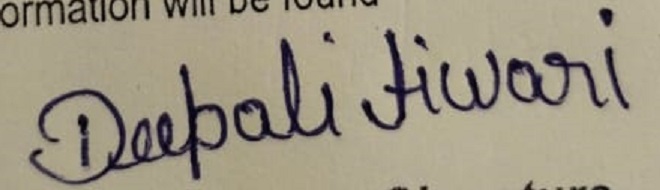 ormation will be found
Deepali Tiwari